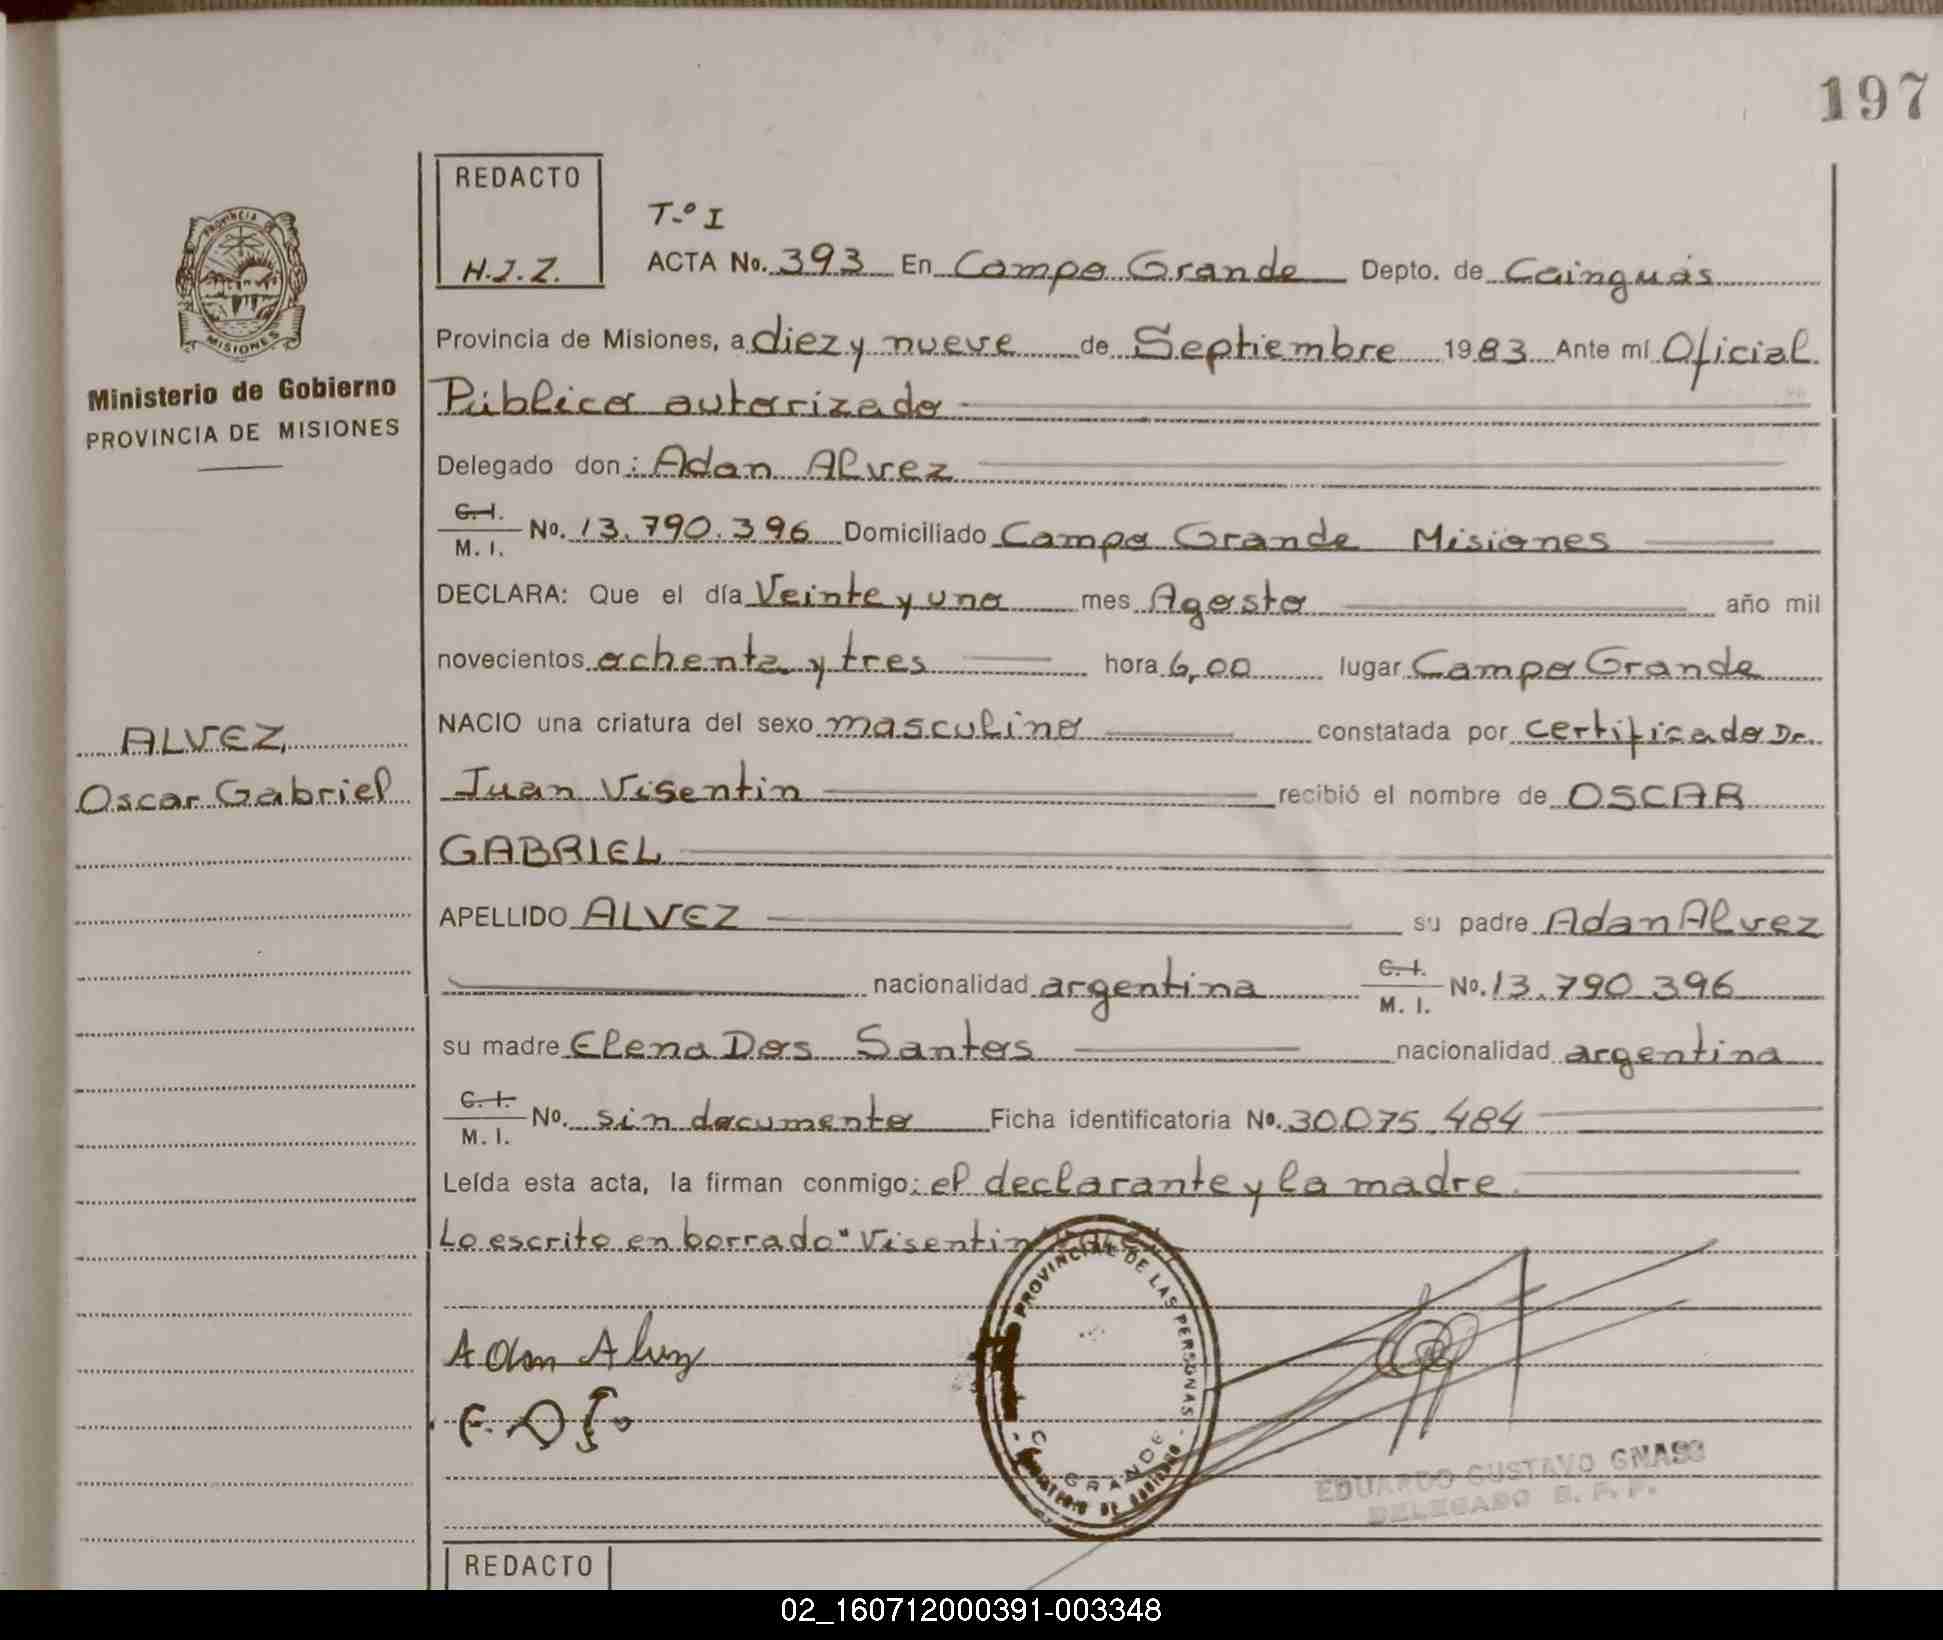 197
REDACTO
H.J.Z.
T.º I
ACTA No. 393 En Campo Grande Depto. de Cainguás
PROVINCIA DE
MISIONES
Ministerio de Gobierno
PROVINCIA DE MISIONES
Provincia de Misiones, a diez y nueve de Septiembre 1983 Ante mí Oficial
Público autorizado
Delegado don: Adan Alvez
C.I. M. I. No. 13.790.396 Domiciliado Campo Grande Misiones
DECLARA: Que el día Veinte y uno mes Agosto año mil
novecientos ochenta y tres hora 6,00 lugar Campo Grande
NACIO una criatura del sexo masculino constatada por certificado Dr.
ALVEZ,
Oscar Gabriel
Juan Visentin recibió el nombre de OSCAR
GABRIEL
APELLIDO ALVEZ su padre Adan Alvez
nacionalidad argentina C.I. M. I. No. 13.790.396
su madre Elena Dos Santos nacionalidad argentina
C.I. M. I. No. sin documento Ficha identificatoria No. 30.075.484
Leída esta acta, la firman conmigo: el declarante y la madre.
Lo escrito en borrado "Visentin
PROVINCIAL DE LAS PERSONAS
GRANDE
Adan Alvez
EDUARDO GUSTAVO
DELEGADO
REDACTO
02_160712000391-003348